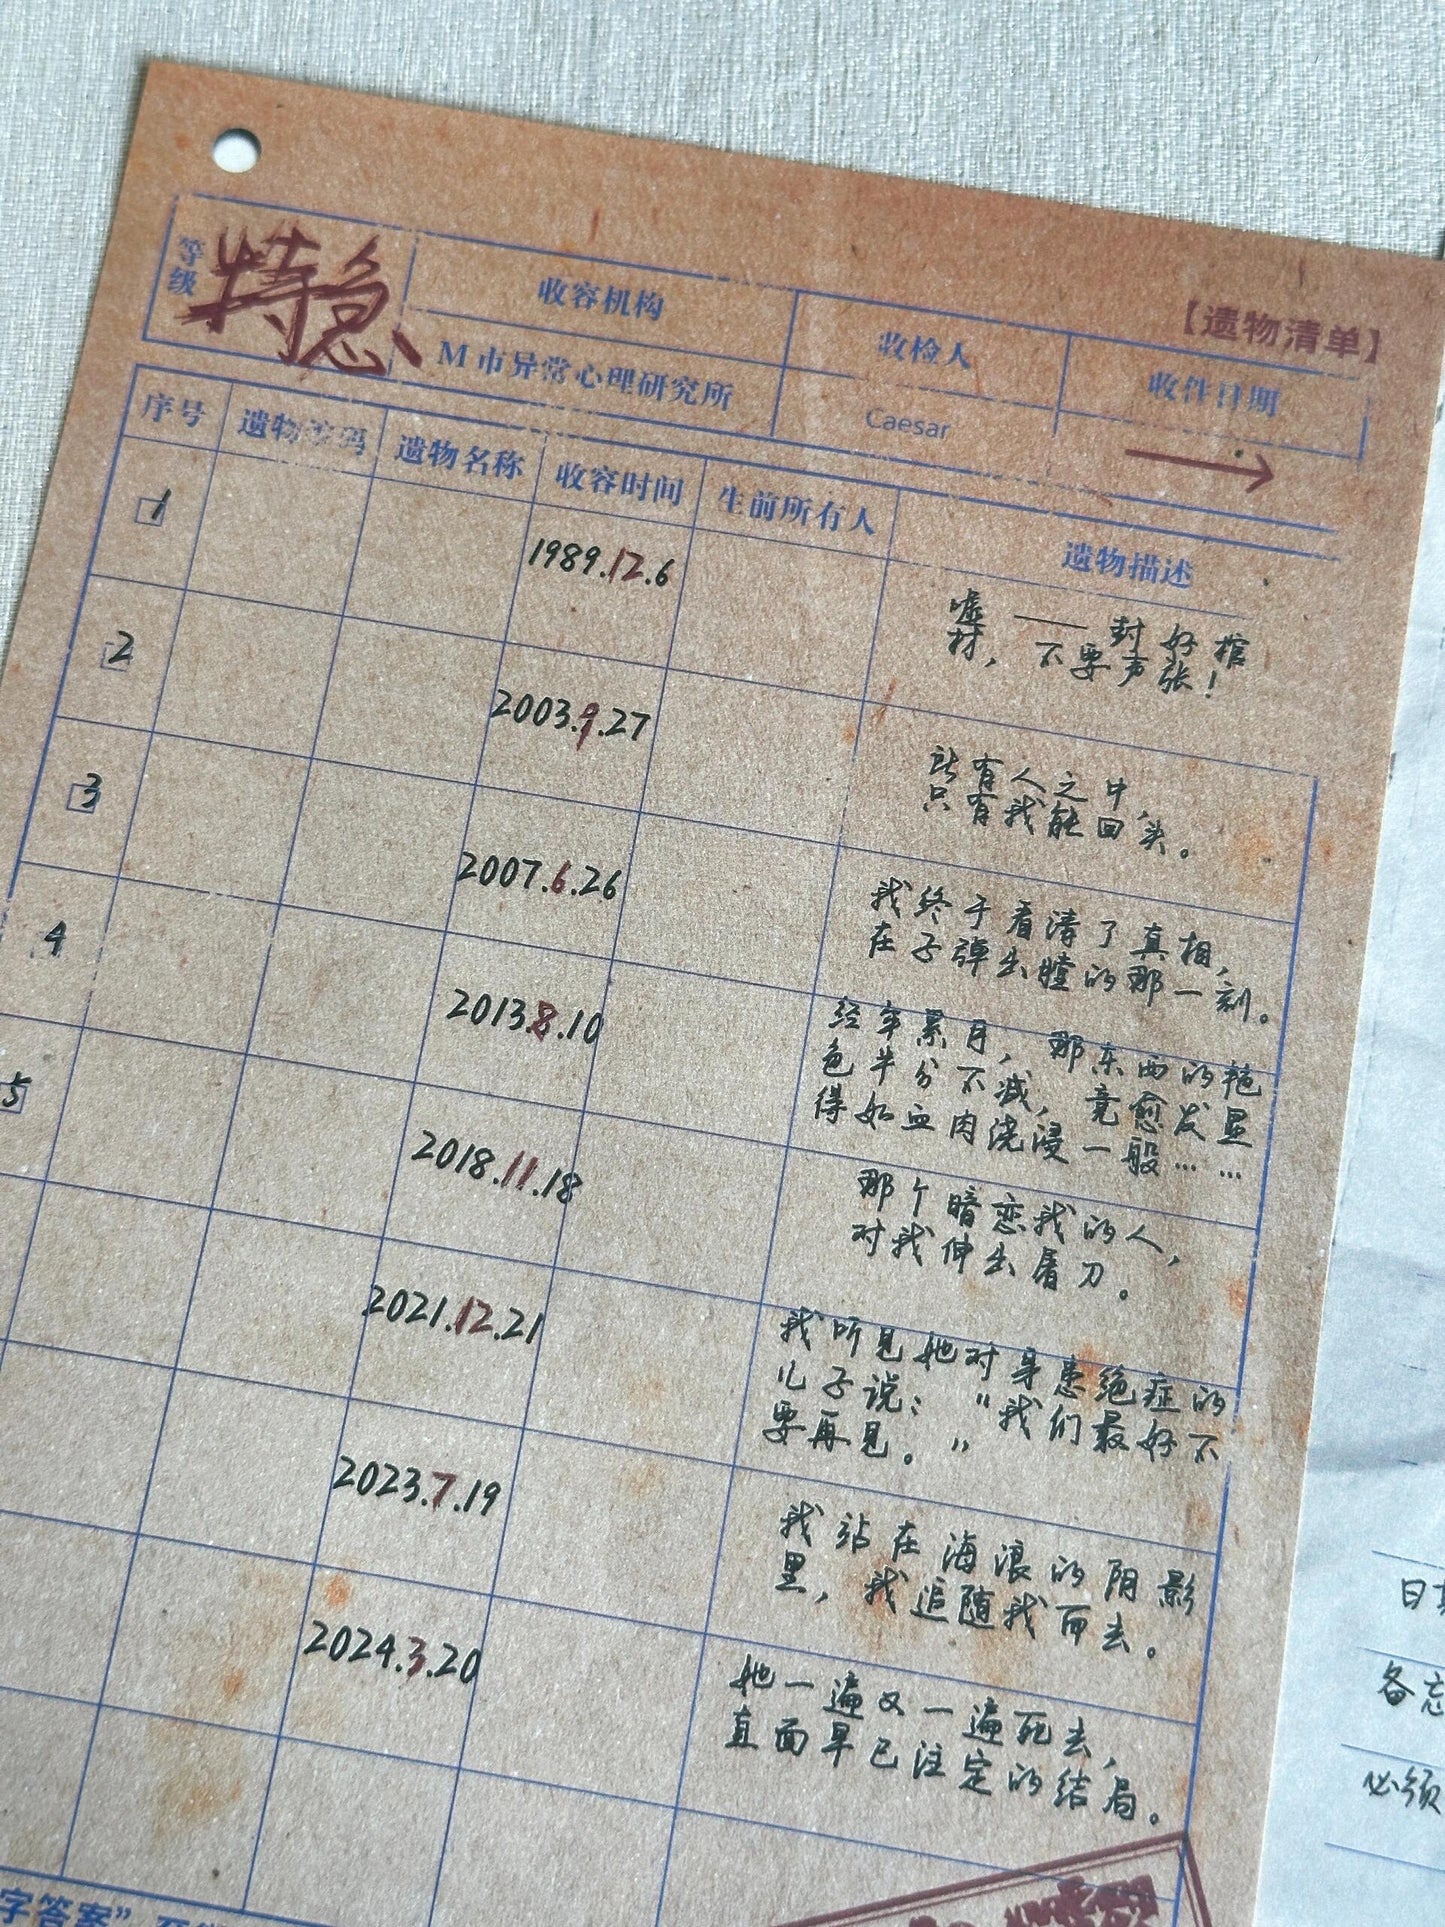 【遗物清单】
等级
特急
收容机构
收检人
收件日期
M市异常心理研究所
Caesar
序号 遗物编码 遗物名称 收容时间 生前所有人 遗物描述
1 1989.12.6
嘘——封好棺
材，不要声张！
2 2003.9.27
所有人之中，
只有我能回头。
3 2007.6.26
我终于看清了真相，
在子弹出膛的那一刻。
4 2013.8.10
经年累月，那东西的艳
色半分不减，竟愈发显
得如血肉浇浸一般……
5 2018.11.18
那个暗恋我的人，
对我伸出屠刀。
2021.12.21
我听见她对身患绝症的
儿子说：“我们最好不
要再见。”
2023.7.19
我站在海浪的阴影
里，我追随我而去。
2024.3.20
她一遍又一遍死去，
直面早已注定的结局。
字答案”
备忘
必须